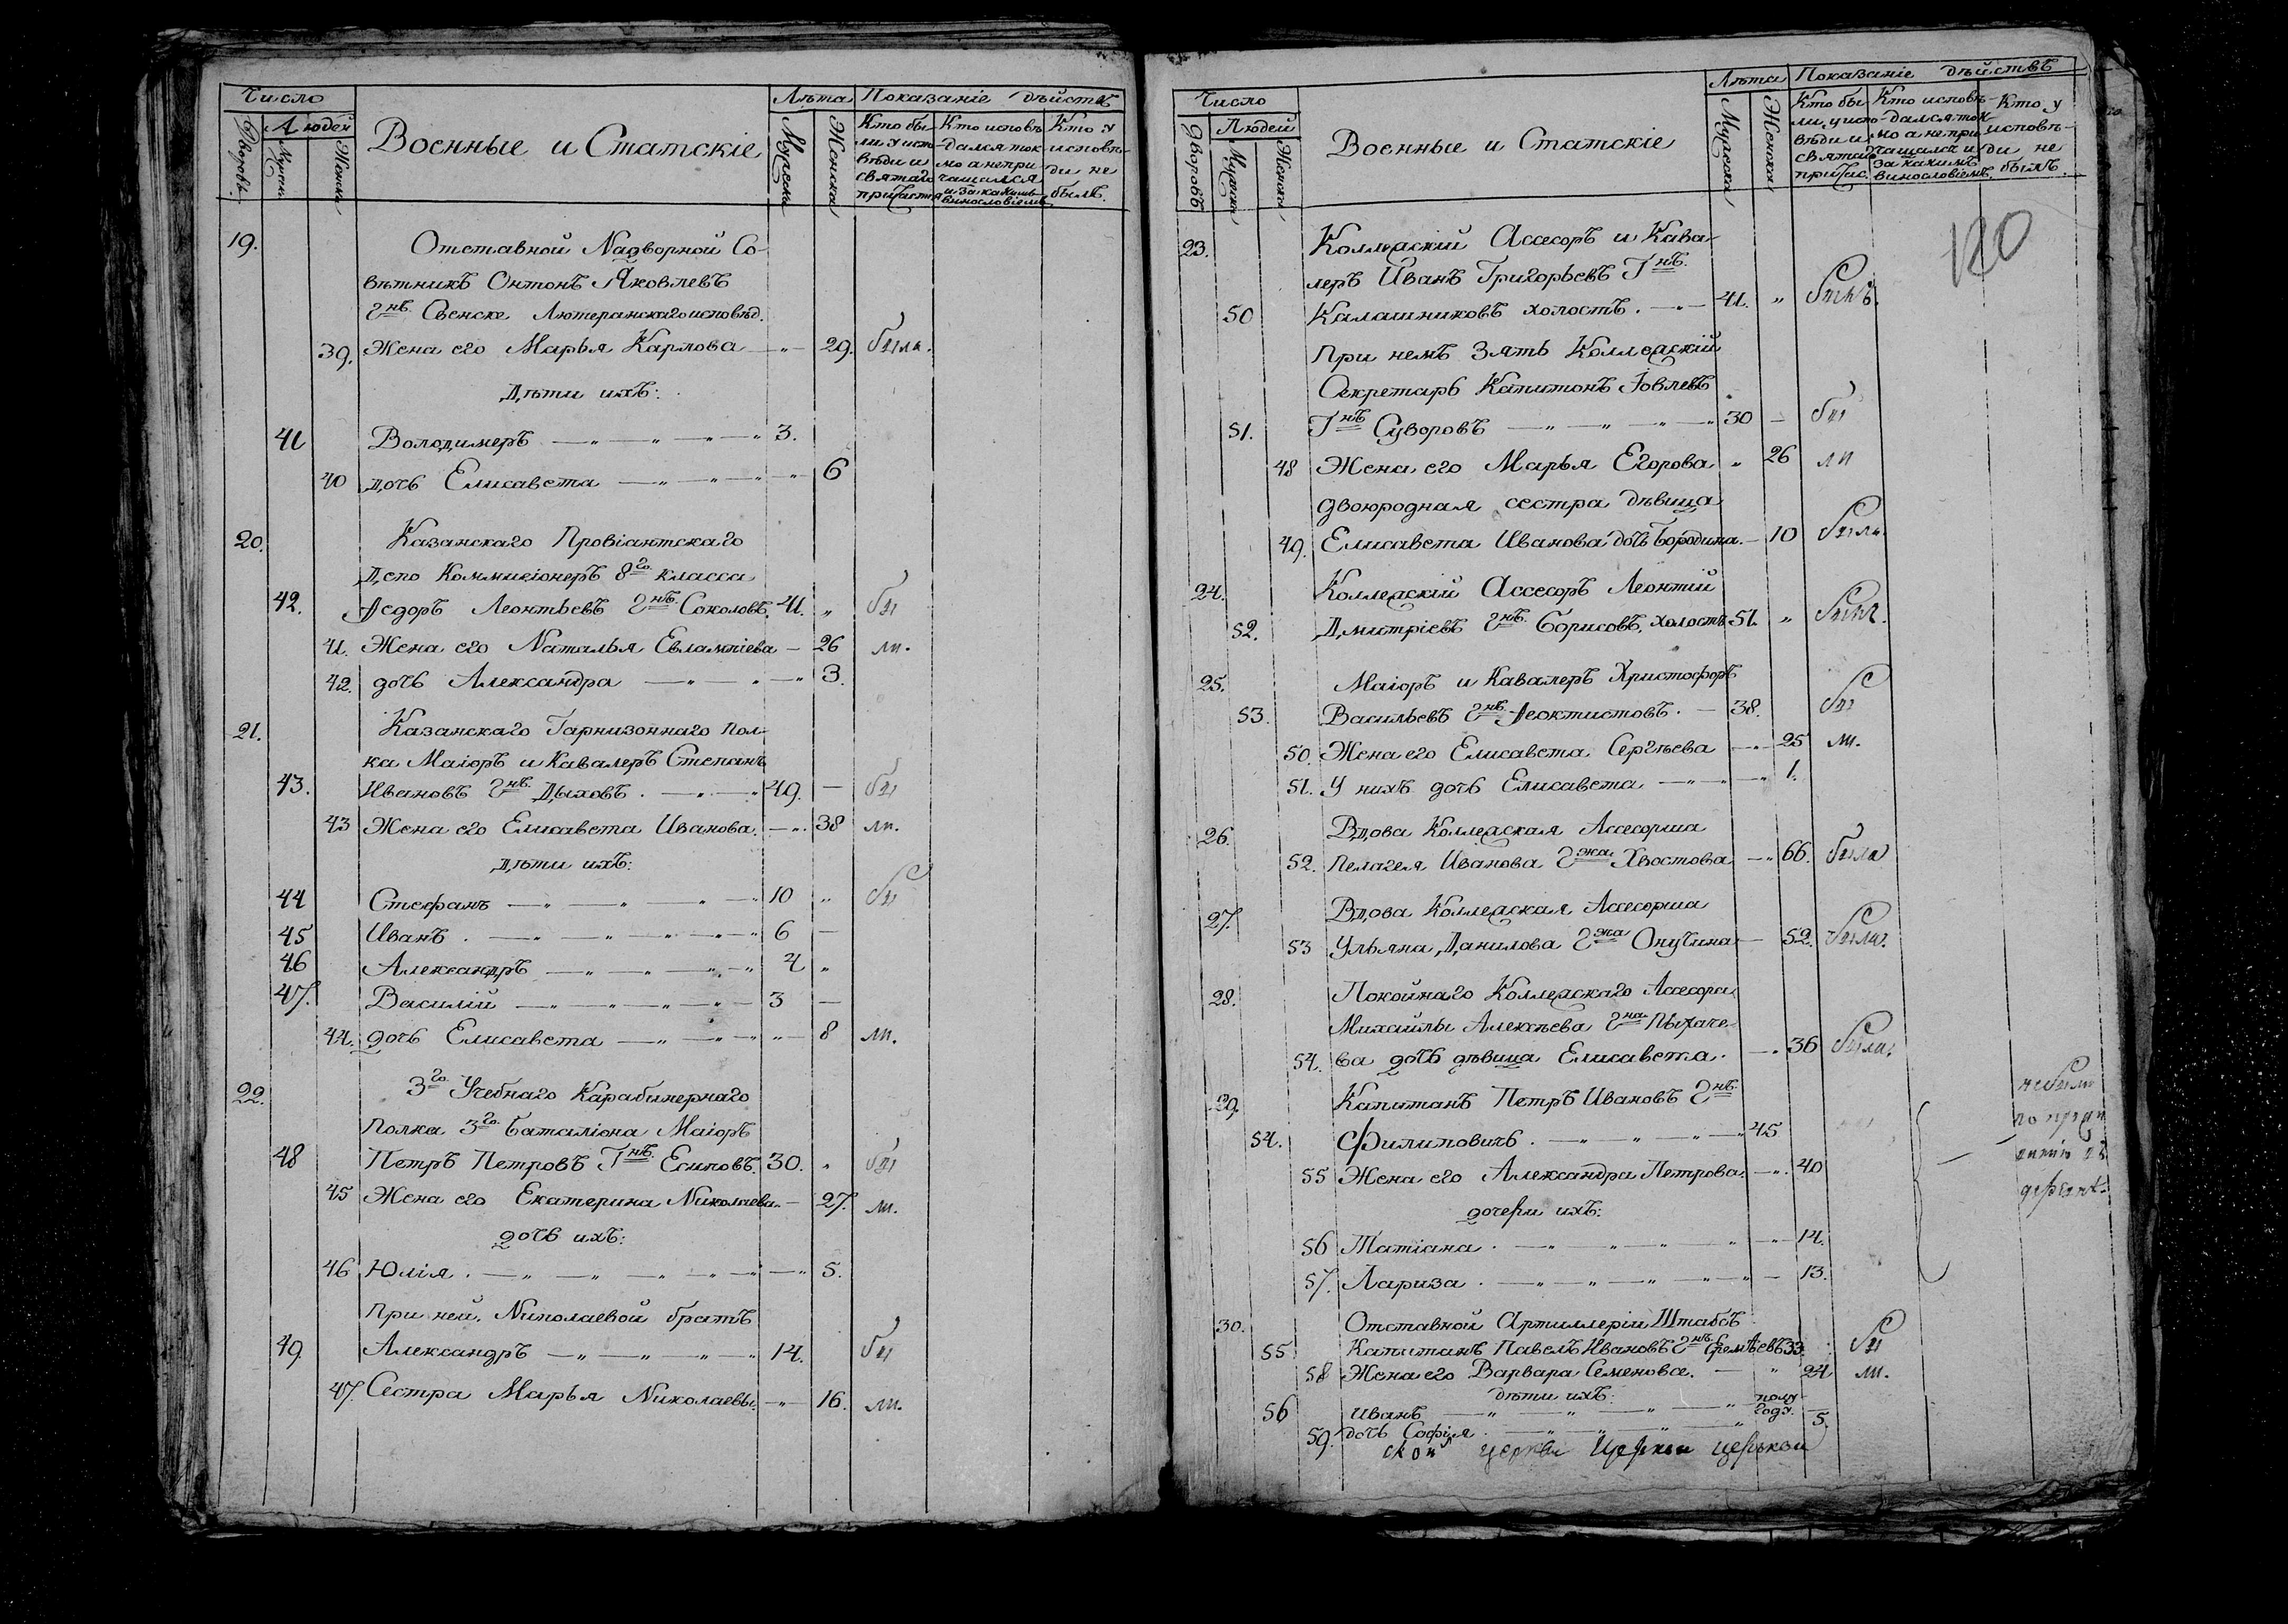 Число
Людей
Дворовъ
Мужеск
Женска
Военные и Статскіе
Лѣта
Мужеска
Женска
Показаніе дѣйствъ
Кто бы-
ли у испо-
вѣди и
святаго
причастія
Кто исповѣ-
дался ток-
мо а непри-
чащался
и за какимъ
винословіемъ
Кто у
исповѣ-
ди не
былъ.
19. Отставной Надворной Со-
вѣтникъ Онтонъ Яковлевъ
Гнъ. Свенске Лютеранскаго исповѣд.
39. Жена его Марья Карлова — „ — 29. была.
Дѣти ихъ:
41 Володимеръ — „ — „ — „ 3.
40 дочь Елисавета — „ — „ — „ 6
20. Казанскаго Провіантскаго
Депо Коммисіонеръ 8го класса
42. Ѳедоръ Леонтьевъ Гнъ. Соколовъ. 41. „ бы
41. Жена его Наталья Евлампіева — 26 ли.
42. дочь Александра — „ — „ — „ 3.
21. Казанскаго Гарнизоннаго пол-
ка Маіоръ и Кавалеръ Степанъ
43. Ивановъ Гнъ. Дыховъ. — „ — „ 49. — бы
43 Жена его Елисавета Иванова. — „ 38 ли.
Дѣти ихъ:
44 Стефанъ — „ — „ — „ 10 „ бы
45 Иванъ. — „ — „ — „ 6 —
46 Александръ — „ — „ — „ 4 „
47. Василій — „ — „ — „ — 3 —
44. дочь Елисавета — „ — „ — „ — 8 ли.
22. 3го Учебнаго Карабинернаго
полка 3го Баталіона Маіоръ
48 Петръ Петровъ Гнъ. Есиповъ. 30. „ бы
45 Жена его Екатерина Николаева. — 27. ли.
дочь ихъ:
46 Юлія. — „ — „ — „ — „ 5.
При ней, Николаевой братъ
49 Александръ — „ — „ — „ — 14. бы
47. Сестра Марья Николаевы. — „ 16. ли.
Число
Людей
Дворовъ
Мужеска
Женска
Военные и Статскіе
Лѣта
Мужеска
Женска
Показаніе дѣйствъ
Кто бы-
ли у испо-
вѣди и
святаго
причас.
Кто исповѣ-
дался ток-
мо а непри-
чащался и
за какимъ
винословіемъ.
Кто у
исповѣ-
ди не
былъ.
120
23. Коллежскій Ассесоръ и Кава-
леръ Иванъ Григорьевъ Гнъ.
50 Калашниковъ холостъ. — „ — 41. „ былъ.
При немъ Зять Коллежскій
Секретарь Капитонъ Іовлевъ
51. Гнъ Суворовъ — „ — „ — „ 30 — бы
48 Жена его Марья Егорова „ 26 ли
двоюродная сестра дѣвица
49. Елисавета Иванова дочь Бородина. — 10 была.
24. Коллежскій Ассесоръ Леонтій
52. Дмитріевъ Гнъ. Борисовъ, холостъ 51. „ былъ.
25. Маіоръ и Кавалеръ Христофоръ
53. Васильевъ Гнъ. Ѳеоктистовъ. — 38. бы
50. Жена его Елисавета Сергѣева — „ 25 ли.
51. У нихъ дочь Елисавета — „ — „ — „ 1.
26. Вдова Коллежская Ассесорша
52. Пелагея Иванова Гжа. Хвостова — „ 66. была
27. Вдова Коллежская Ассесорша
53 Ульяна Данилова Гжа Онучина — 52. была.
28. Покойнаго Коллежскаго Ассесора
Михаилы Алексѣева Гна. Пыхаче-
54. ва дочь дѣвица Елисавета. — „ 36 была.
29. Капитанъ Петръ Ивановъ Гнъ.
54. Филиповичь. — „ — „ — „ 45
55 Жена его Александра Петрова. — „ 40
дочери ихъ:
56 Татіана. — „ — „ — „ — „ 14.
57. Лариза. — „ — „ — „ — „ — 13.
небыли
30. Отставной Артиллеріи Штабсъ
55 Капитанъ Павелъ Ивановъ Гнъ. Еремѣевъ 33. бы
58 Жена его Варвара Семенова. — „ 24 ли.
дѣти ихъ:
56 Иванъ — „ — „ — „ — „ полу
года. —
59. дочь Софія. — „ — „ — „ 5.
ской церкви Церкви церькви